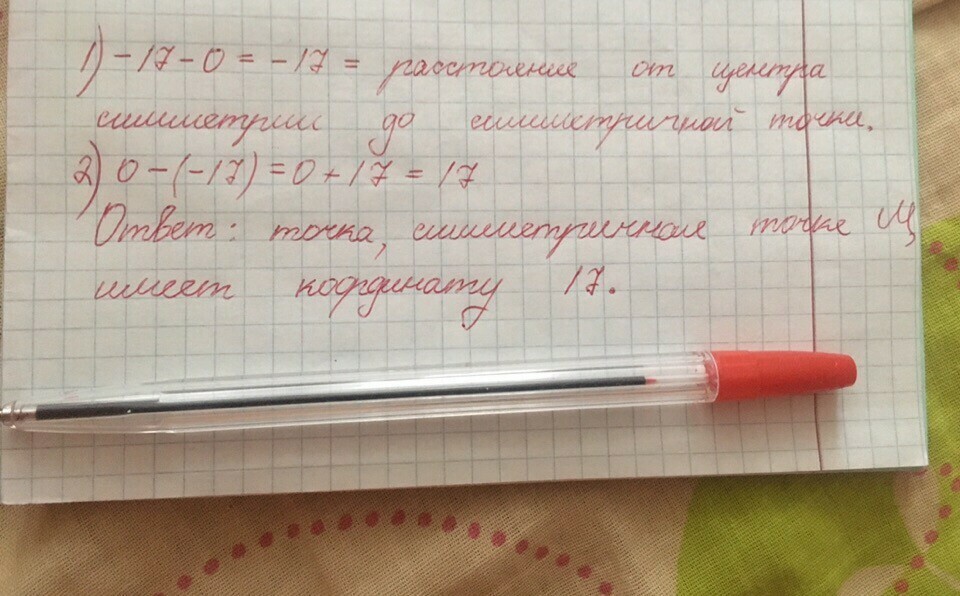 1) -17 - 0 = -17 = расстояние от центра
симметрии до симметричной точки.
2) 0 - (-17) = 0 + 17 = 17
Ответ: точка, симметричная точке Ц
имеет координату 17.